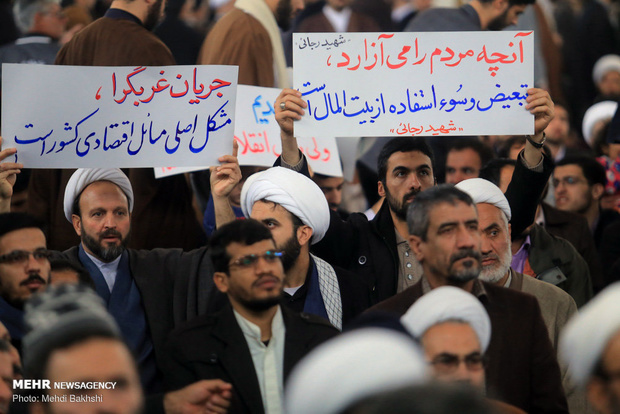 جریان غربگرا ،
مشکل اصلی مسائل اقتصادی کشور است
شهید رجائی
آنچه مردم را می آزارد ،
تبعیض و سوء استفاده از بیت المال است
شهید رجائی
ولی
انقلا
MEHR NEWSAGENCY
© Mehdi Bakhshi